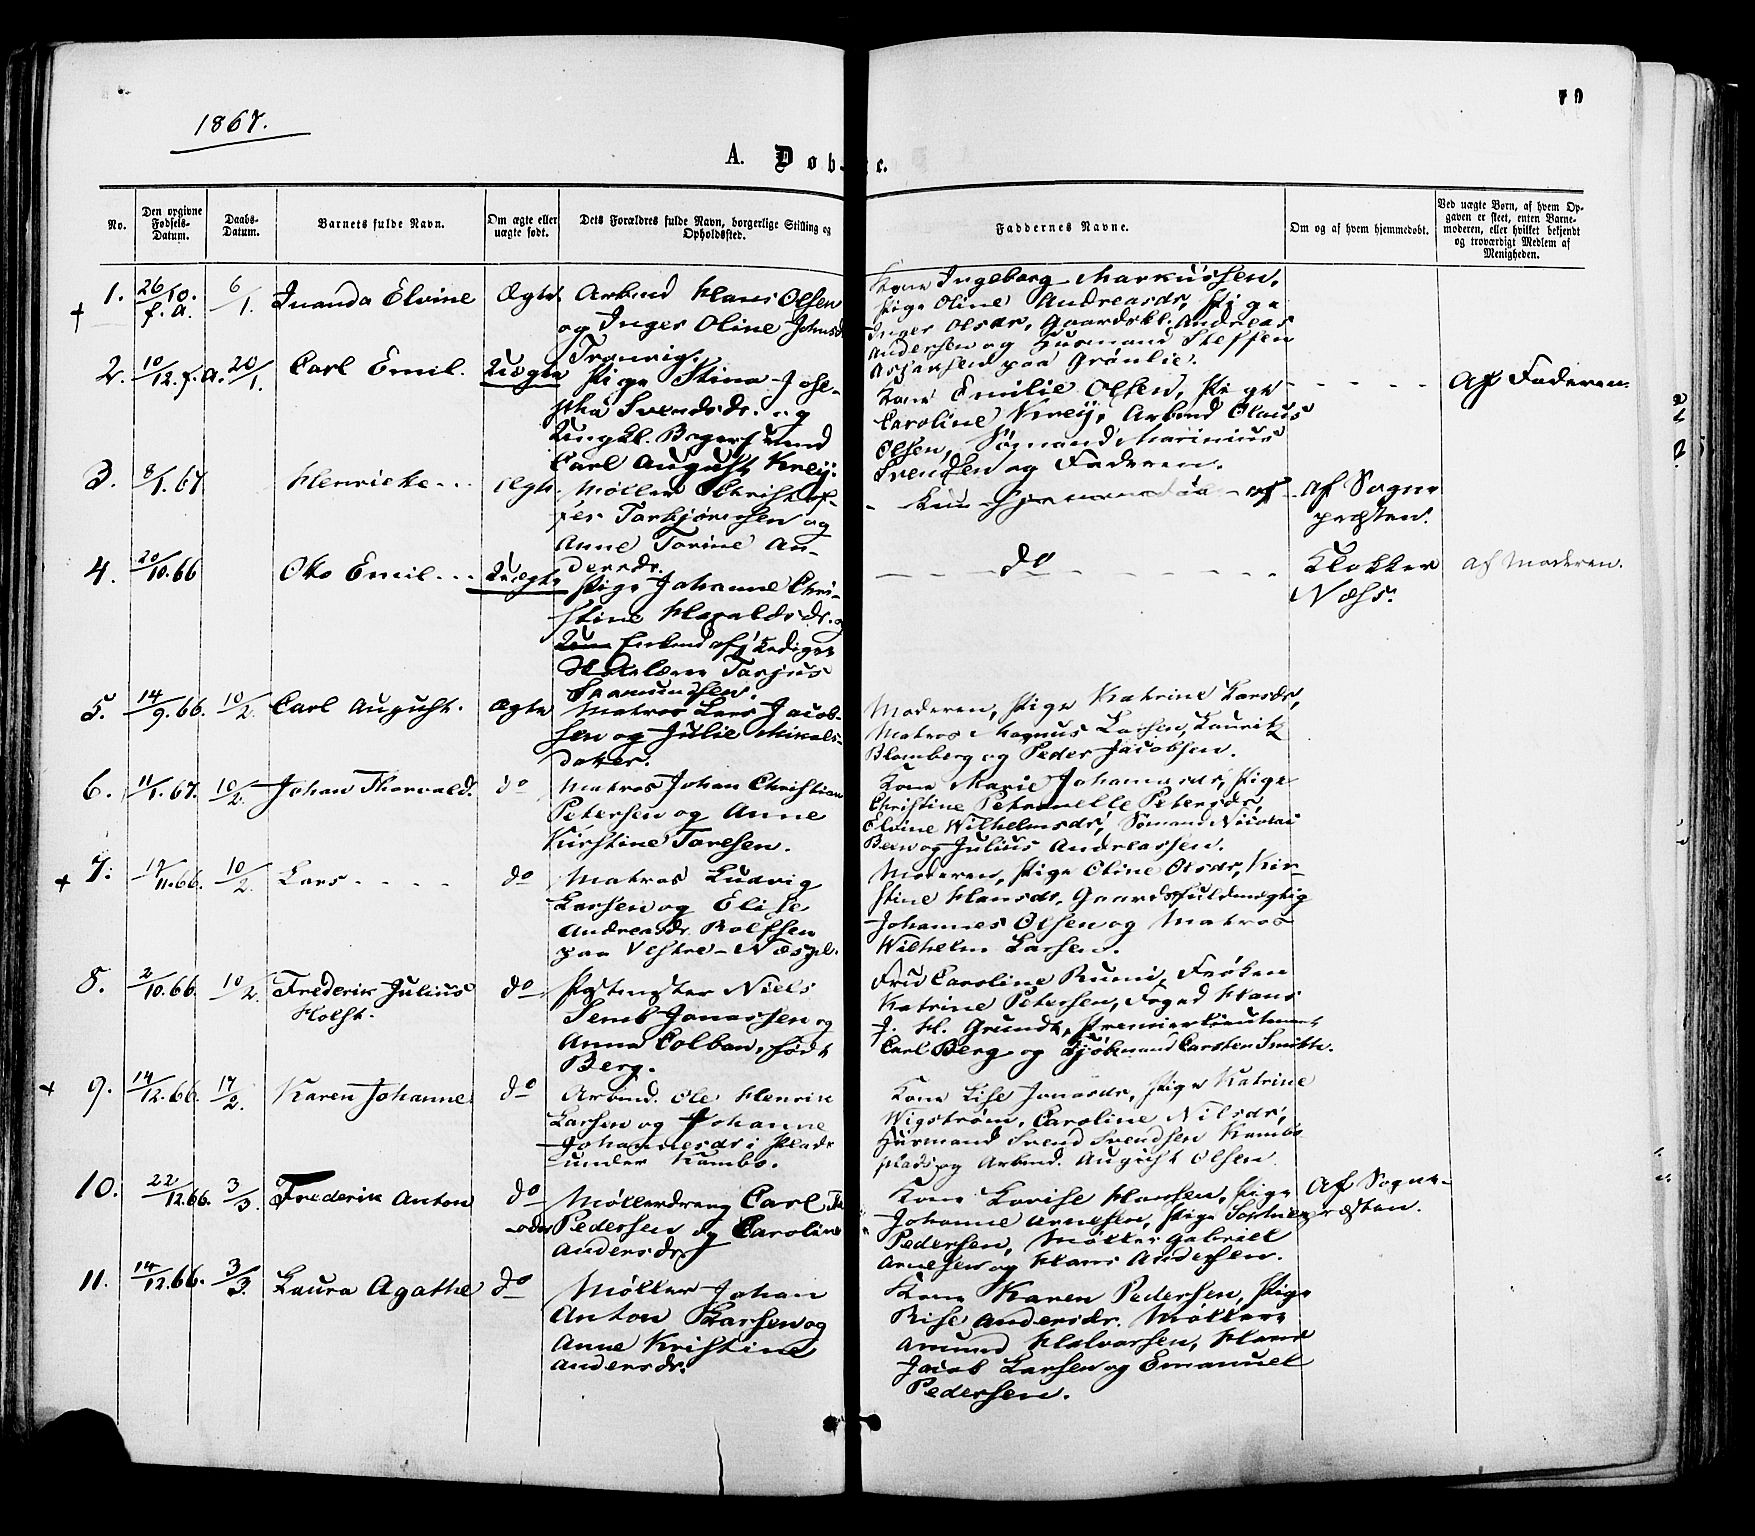 1867.
A. Døb- te.
No.
Den opgivne Fødsels-Datum.
Daabs-Datum.
Barnets fulde Navn.
Om ægte eller uægte født.
Dets Forældres fulde Navn, borgerlige Stilling og Opholdssted.
Faddernes Navne.
Om og af hvem hjemmedøbt.
Ved uægte Børn, af hvem Opgaven er skeet, enten Barnemoderen, eller hvilket bekjendt og troværdigt Medlem af Menigheden.
+ 1. 26/10. f. A. 6/1. Elvine Ægte Arbmd Hans Olsen
og Inger Oline Johnsd.
Kone Ingeborg Markussen,
Pige Oline Andreasdr, Pige
Inger Olsdr, Gaardsbr. Andreas
Andersen og Husmand Steffen
paa Grønlie.
2. 10/12. f. A. 20/1. Carl Emil. Uægte
Pige Stina Jose-
pha Svendsdr. og
Ungkl.
Carl August Krey.
Kone Emilie Olsen, Pige
Caroline Krey, Arbmd Claus
Olsen, Sømand Marinius
Svendsen og Faderen.
Af Faderen.
3. 8/1. 67 Henrikke - - - Ægte
Møller Christof-
fer Tarbjørnsen og
Anne Torine An-
dersdr.
af Sogne
præsten.
4. 20/10. 66 Oto Emil - - - Uægte
Pige Johanne Chri-
stine Haraldsdr. og
Tarjus
Klokker
Næss.
do
af Moderen.
5. 14/9. 66. 10/2. Carl August. Ægte
Matros Lars Jacob-
sen og Julie Mikels-
datter.
Moderen, Pige Katrine Larsdr,
Matros Magnus Larsen, Lauritz
Blomberg og Peder Jacobsen.
6. 11/1. 67. 10/2. Johan Thorvald. do
Matros Johan Christian
Petersen og Anne
Kirstine Toresen.
Kone Marie Johannesdr, Pige
Christine Petronelle Petersdr,
Elvine Wilhelmsdr, Sømand Nicolai
Bern og Julius Andreassen.
+ 7. 11. 66. 10/2. Lars - - - - do
Matros Ludvig
Larsen og Elise
Andreasdr. Rolfsen
paa Vestre-
Moderen, Pige Oline Olsdr, Kir-
stine Hansdr, Gaardsfuldmegtig
Johannes Olsen og Matros
Wilhelm Larsen.
8. 2/10. 66. 10/2. Frederik Julius
Holst. do
Postmester Niels
Semb Jonassen og
Anna Colban, født
Berg.
Fru Caroline, Frøken
Katrine Petersen, Foged Hans
J. H. Grundt, Premierlieutenant
Carl Berg og Kjøbmand Carsten Smith.
+ 9. 14/12. 66. 17/2. Karen Johanne do
Arbmd. Ole Henrik
Larsen og Johanne
Johannesdr i Plads
under Kambo.
Kone Lise Jonasdr, Pige Katrine
Wigstrøm, Caroline Nilsdr,
Husmand Svend Svendsen Kambo
plads og Arbmd. August Olsen.
10. 22/12. 66. 3/3. Frederik Anton do
Møllerdreng Carl
Pedersen og Caroline
Andersdr
Kone Lovise Hansen, Pige
Johanne Arnesen, Pige
Pedersen, Møller Gabriel
Arnesen og Hans Andersen.
Af Sogne-
præsten.
11. 14/12. 66. 3/3. Laura Agathe do
Møller Johan
Anton Larsen og
Anne Kristine
Andersdr.
Kone Karen Pedersen, Pige
Andersdr. Møllere
Amund Halvorsen, Hans
Jacob Larsen og Emanuel
Pedersen.